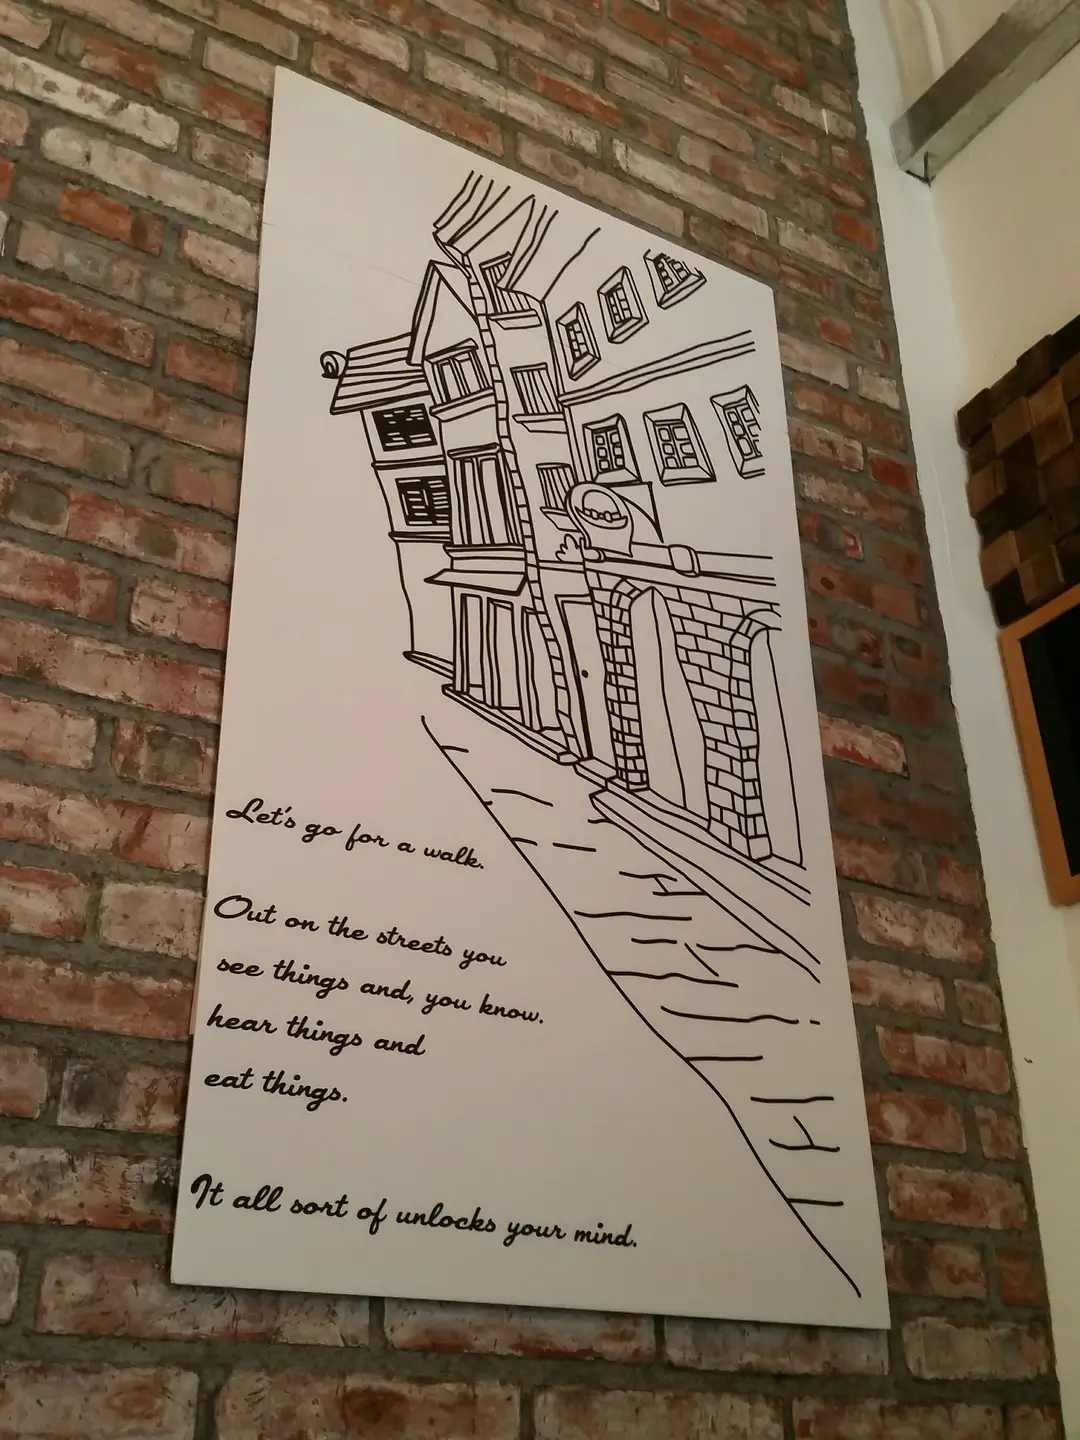 Let's go for a walk.
Out on the streets you
see things and, you know.
hear things and
eat things.
It all sort of unlocks your mind.